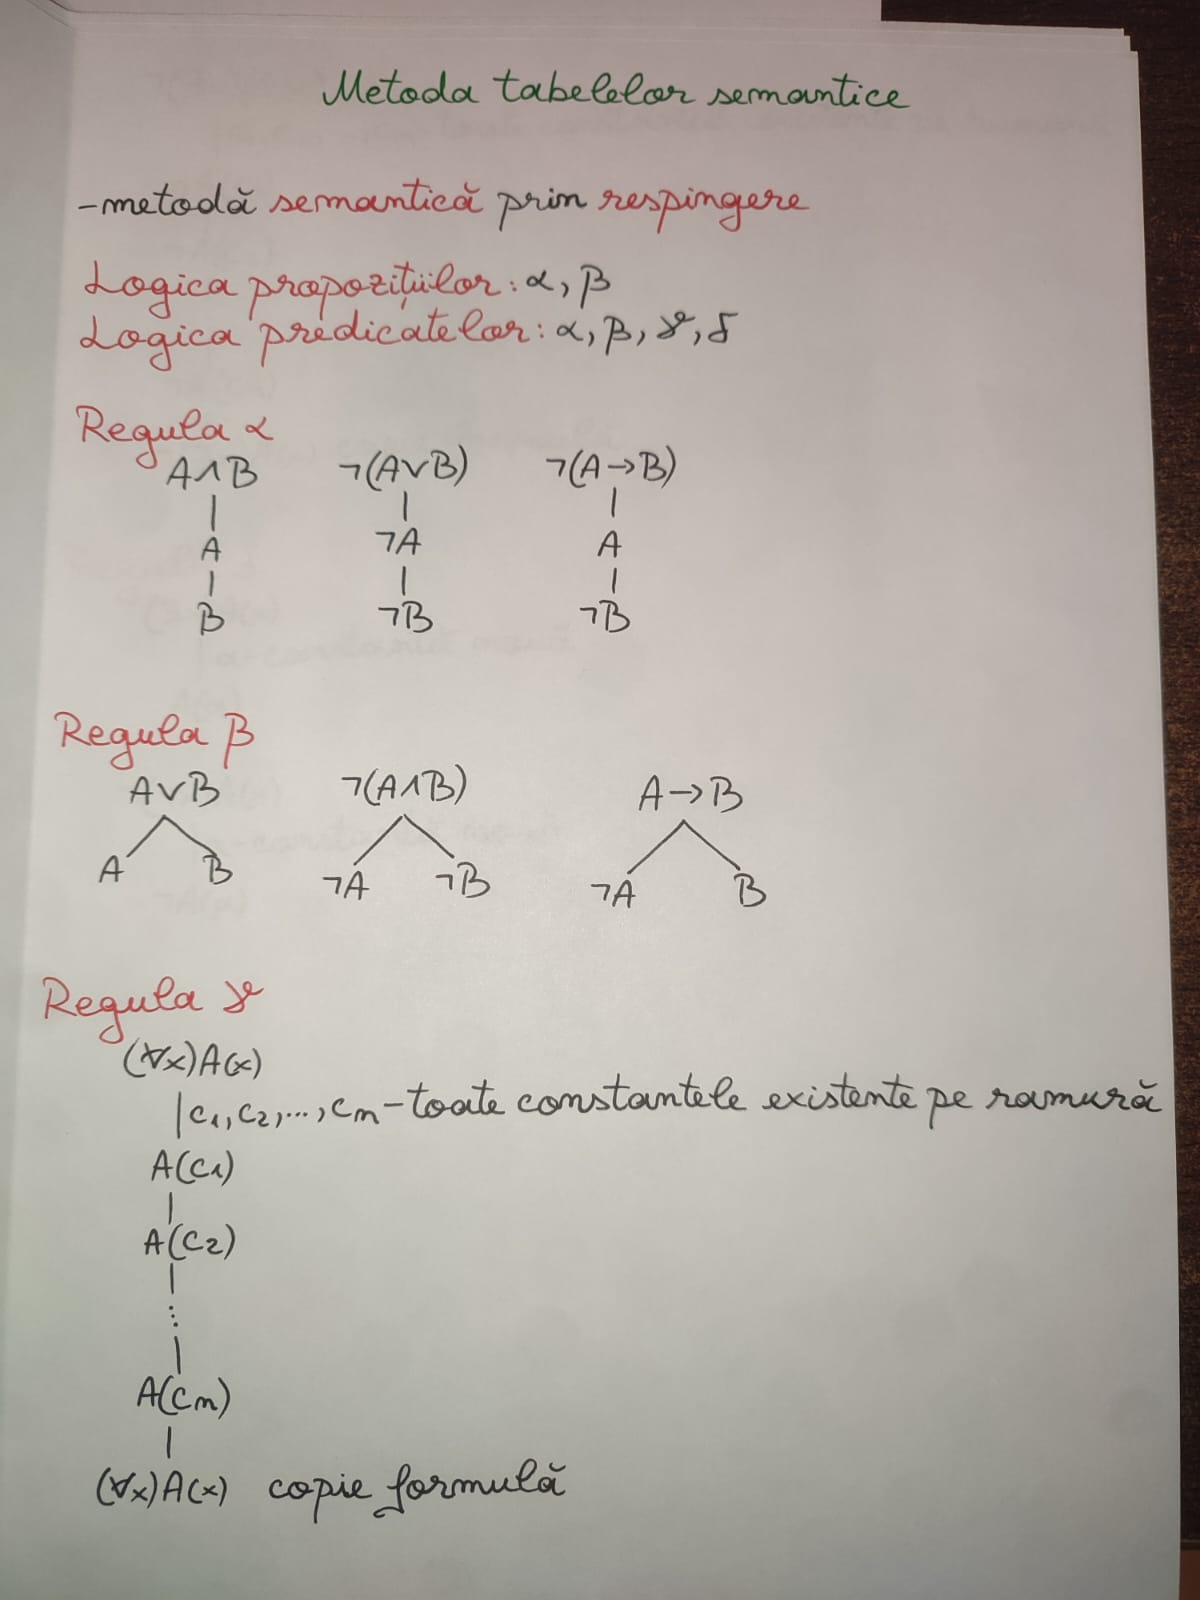 Metoda tabelelor semantice
-metodă semantică prin respingere
Logica propozițiilor: α, β
Logica predicatelor: α, β, γ, δ
Regula α
A∧B ¬(A∨B) ¬(A→B)
A ¬A A
B ¬B ¬B
Regula β
A∨B ¬(A∧B) A→B
A B ¬A ¬B ¬A B
Regula γ
(∀x)A(x)
c1, c2, ..., cn - toate constantele existente pe ramură
A(c1)
A(c2)
⋮
A(cn)
(∀x)A(x) copie formulă